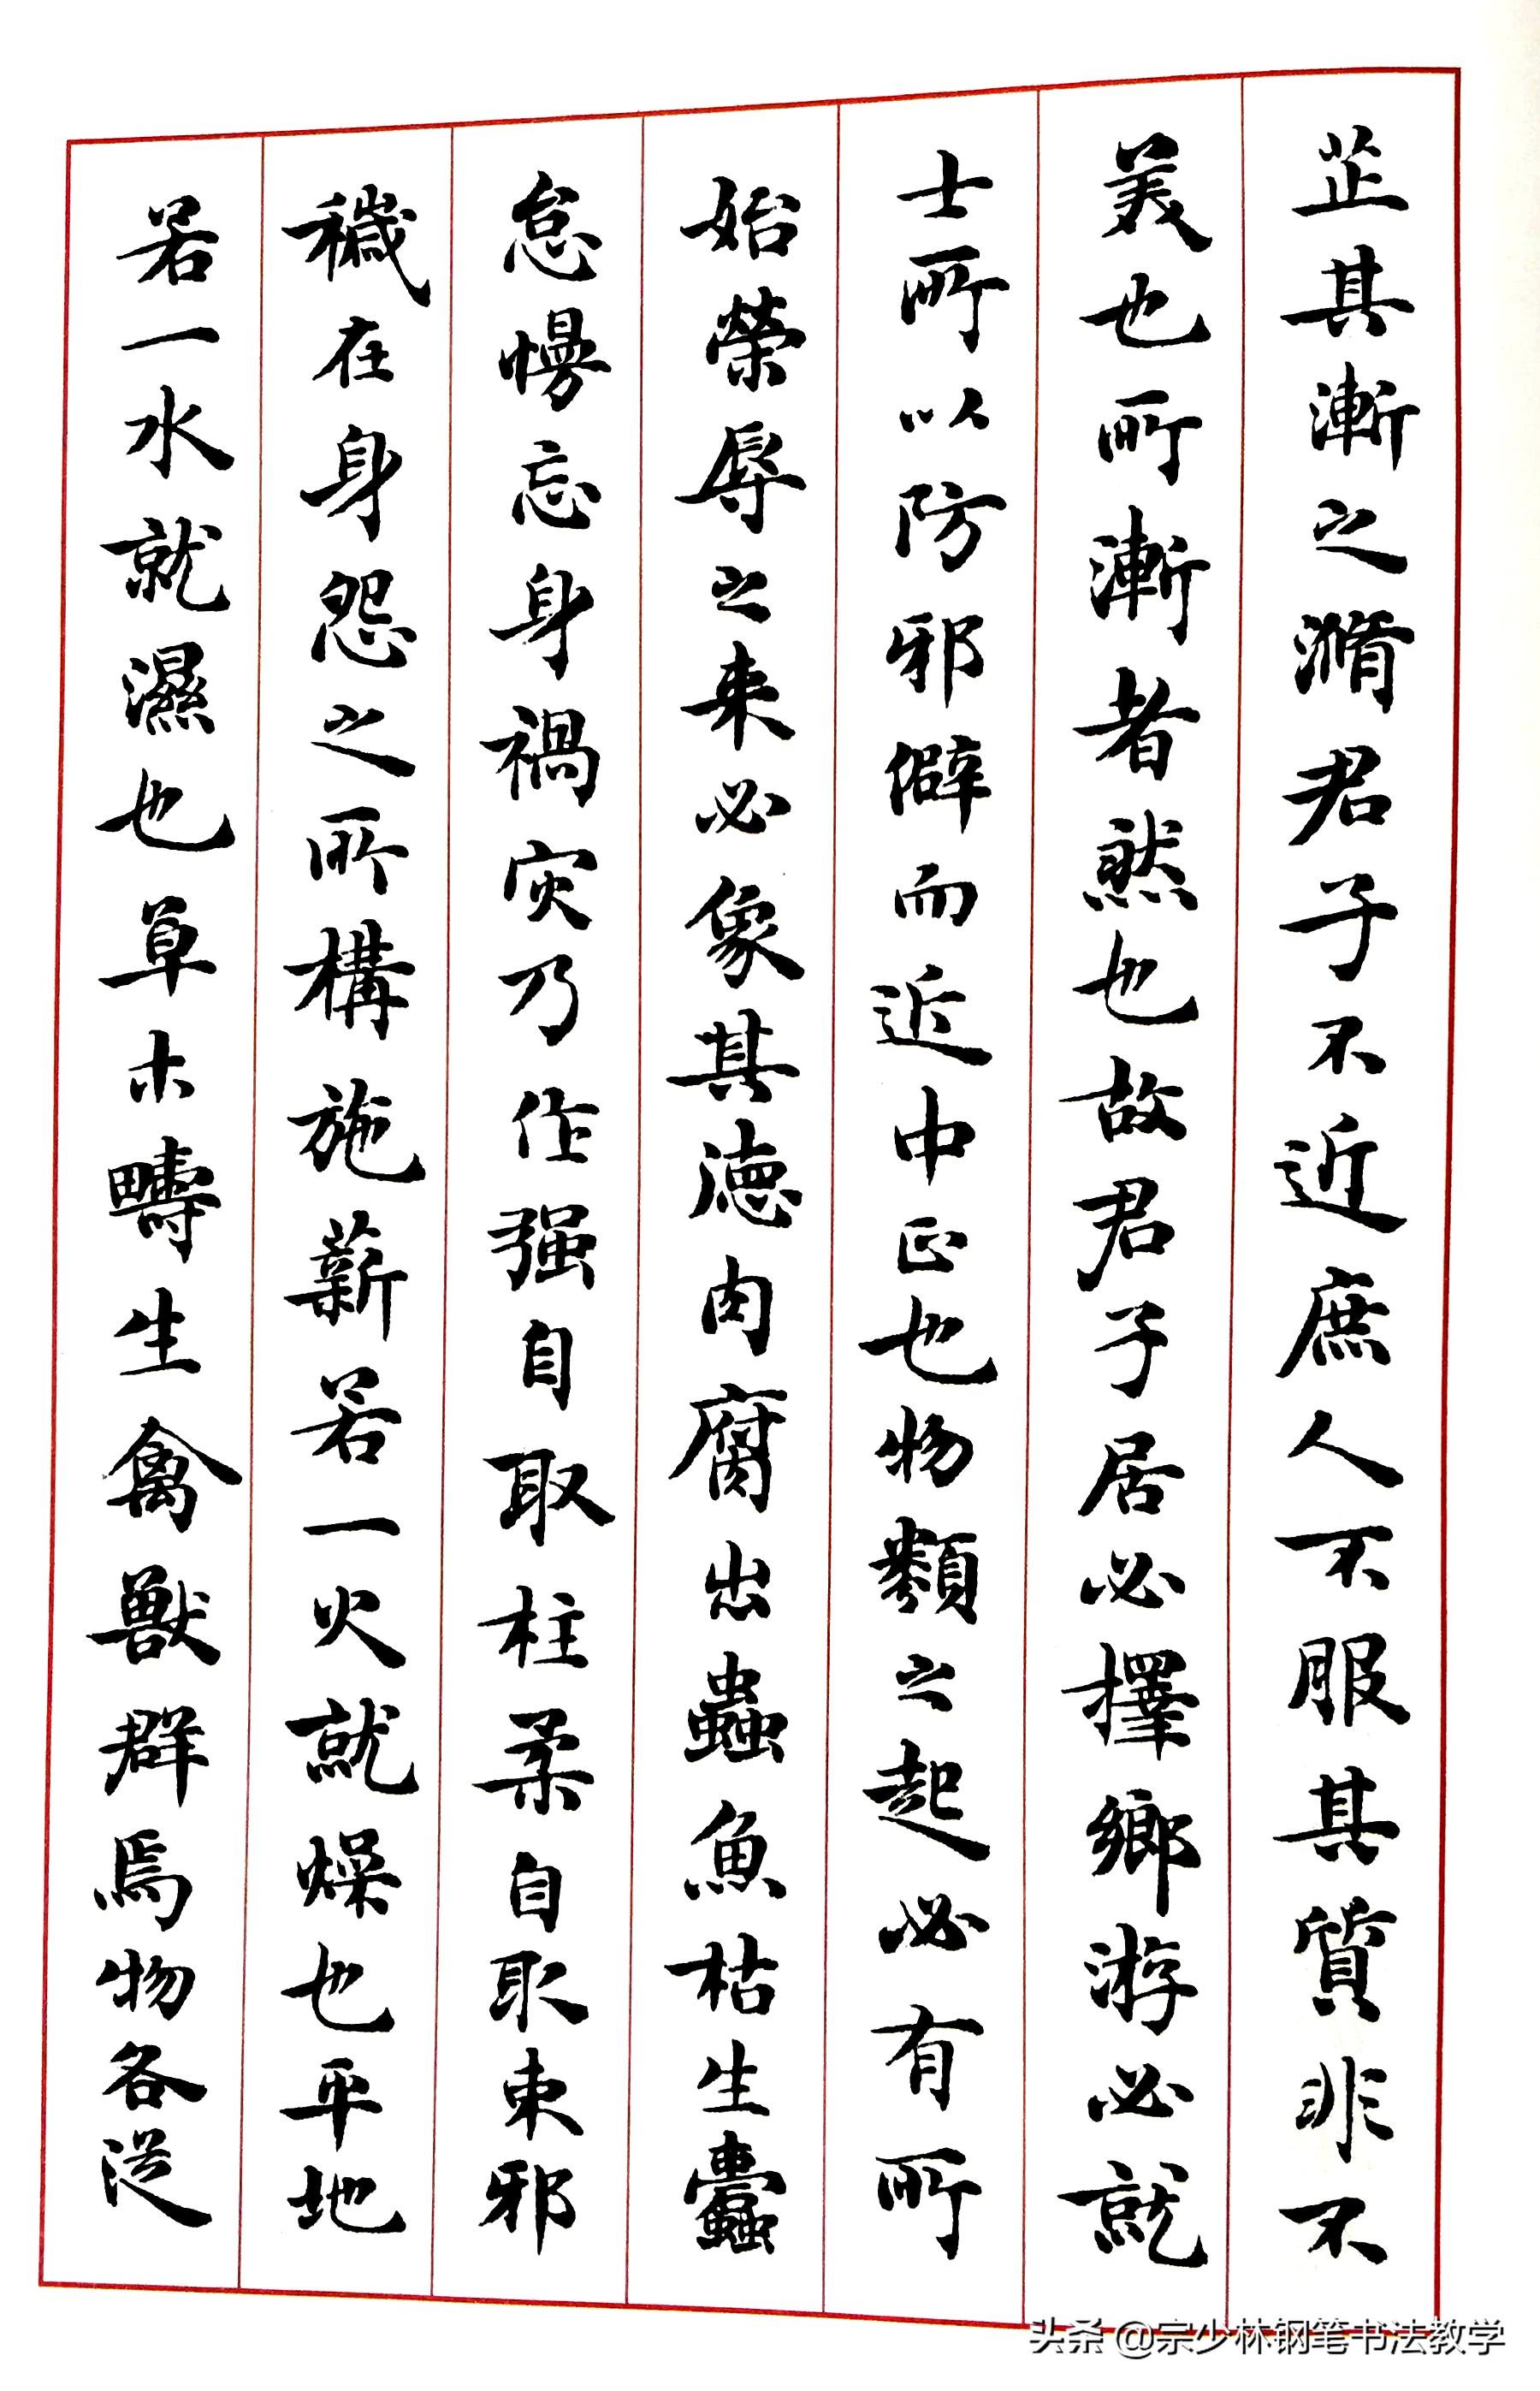 芷其漸之滫君子不近庶人不服其質非不
美也所漸者然也故君子居必擇鄉游必就
士所以防邪僻而近中正也物類之起必有所
始榮辱之来必象其德肉腐出蟲魚枯生蠹
怠慢忘身禍灾乃作强自取柱柔自取束邪
穢在身怨之所構施薪若一火就燥也平地
若一水就濕也草木疇生禽獸群焉物各從
头条 @宗少林钢笔书法教学